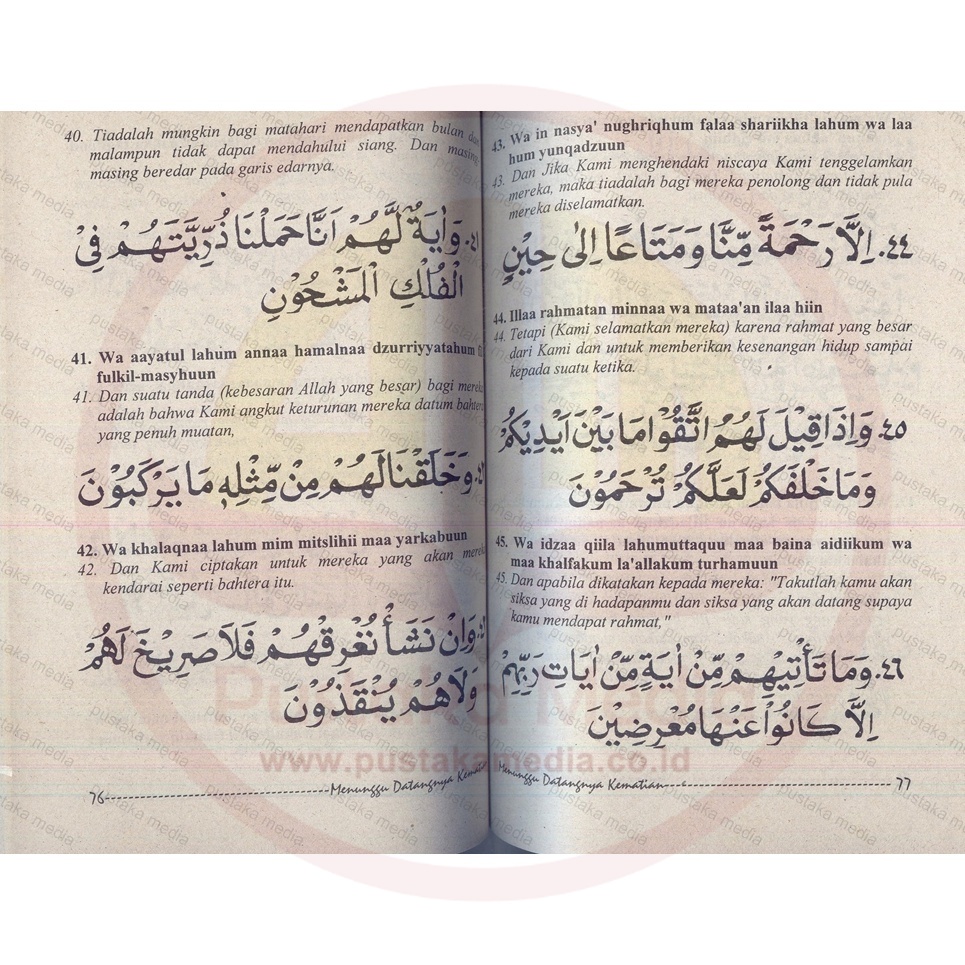 40. Tiadalah mungkin bagi matahari mendapatkan bulan dan
malampun tidak dapat mendahului siang. Dan masing-
masing beredar pada garis edarnya.
٤١. وَاٰيَةٌ لَّهُمْ اَنَّا حَمَلْنَا ذُرِّيَّتَهُمْ فِيْ
الْفُلْكِ الْمَشْحُوْنِ
41. Wa aayatul lahum annaa hamalnaa dzurriyyatahum
fulkil-masyhuun
41. Dan suatu tanda (kebesaran Allah yang besar) bagi mereka
adalah bahwa Kami angkut keturunan mereka datum bahtera
yang penuh muatan,
وَخَلَقْنَا لَهُمْ مِنْ مِّثْلِهٖ مَا يَرْكَبُوْنَ
42. Wa khalaqnaa lahum mim mitslihii maa yarkabuun
42. Dan Kami ciptakan untuk mereka yang akan mereka
kendarai seperti bahtera itu.
وَاِنْ نَشَأْ نُغْرِقْهُمْ فَلَا صَرِيْخَ لَهُمْ
وَلَاهُمْ يُنْقَذُوْنَ
76 Menunggu Datangnya Kematian
43. Wa in nasya' nughriqhum falaa shariikha lahum wa laa
hum yunqadzuun
43. Dan Jika Kami menghendaki niscaya Kami tenggelamkan
mereka, maka tiadalah bagi mereka penolong dan tidak pula
mereka diselamatkan.
٤٤. اِلَّا رَحْمَةً مِّنَّا وَمَتَاعًا اِلٰى حِيْنٍ
44. Illaa rahmatan minnaa wa mataa'an ilaa hiin
44. Tetapi (Kami selamatkan mereka) karena rahmat yang besar
dari Kami dan untuk memberikan kesenangan hidup sampai
kepada suatu ketika.
٤٥. وَاِذَا قِيْلَ لَهُمُ اتَّقُوْا مَا بَيْنَ اَيْدِيْكُمْ
وَمَا خَلْفَكُمْ لَعَلَّكُمْ تُرْحَمُوْنَ
45. Wa idzaa qiila lahumuttaquu maa baina aidiikum wa
maa khalfakum la'allakum turhamuun
45. Dan apabila dikatakan kepada mereka: "Takutlah kamu akan
siksa yang di hadapanmu dan siksa yang akan datang supaya
kamu mendapat rahmat,"
٤٦. وَمَا تَأْتِيْهِمْ مِّنْ اٰيَةٍ مِّنْ اٰيَاتِ رَبِّهِمْ
اِلَّا كَانُوْا عَنْهَا مُعْرِضِيْنَ
Menunggu Datangnya Kematian 77
Pustaka Media
www.pustakamedia.co.id